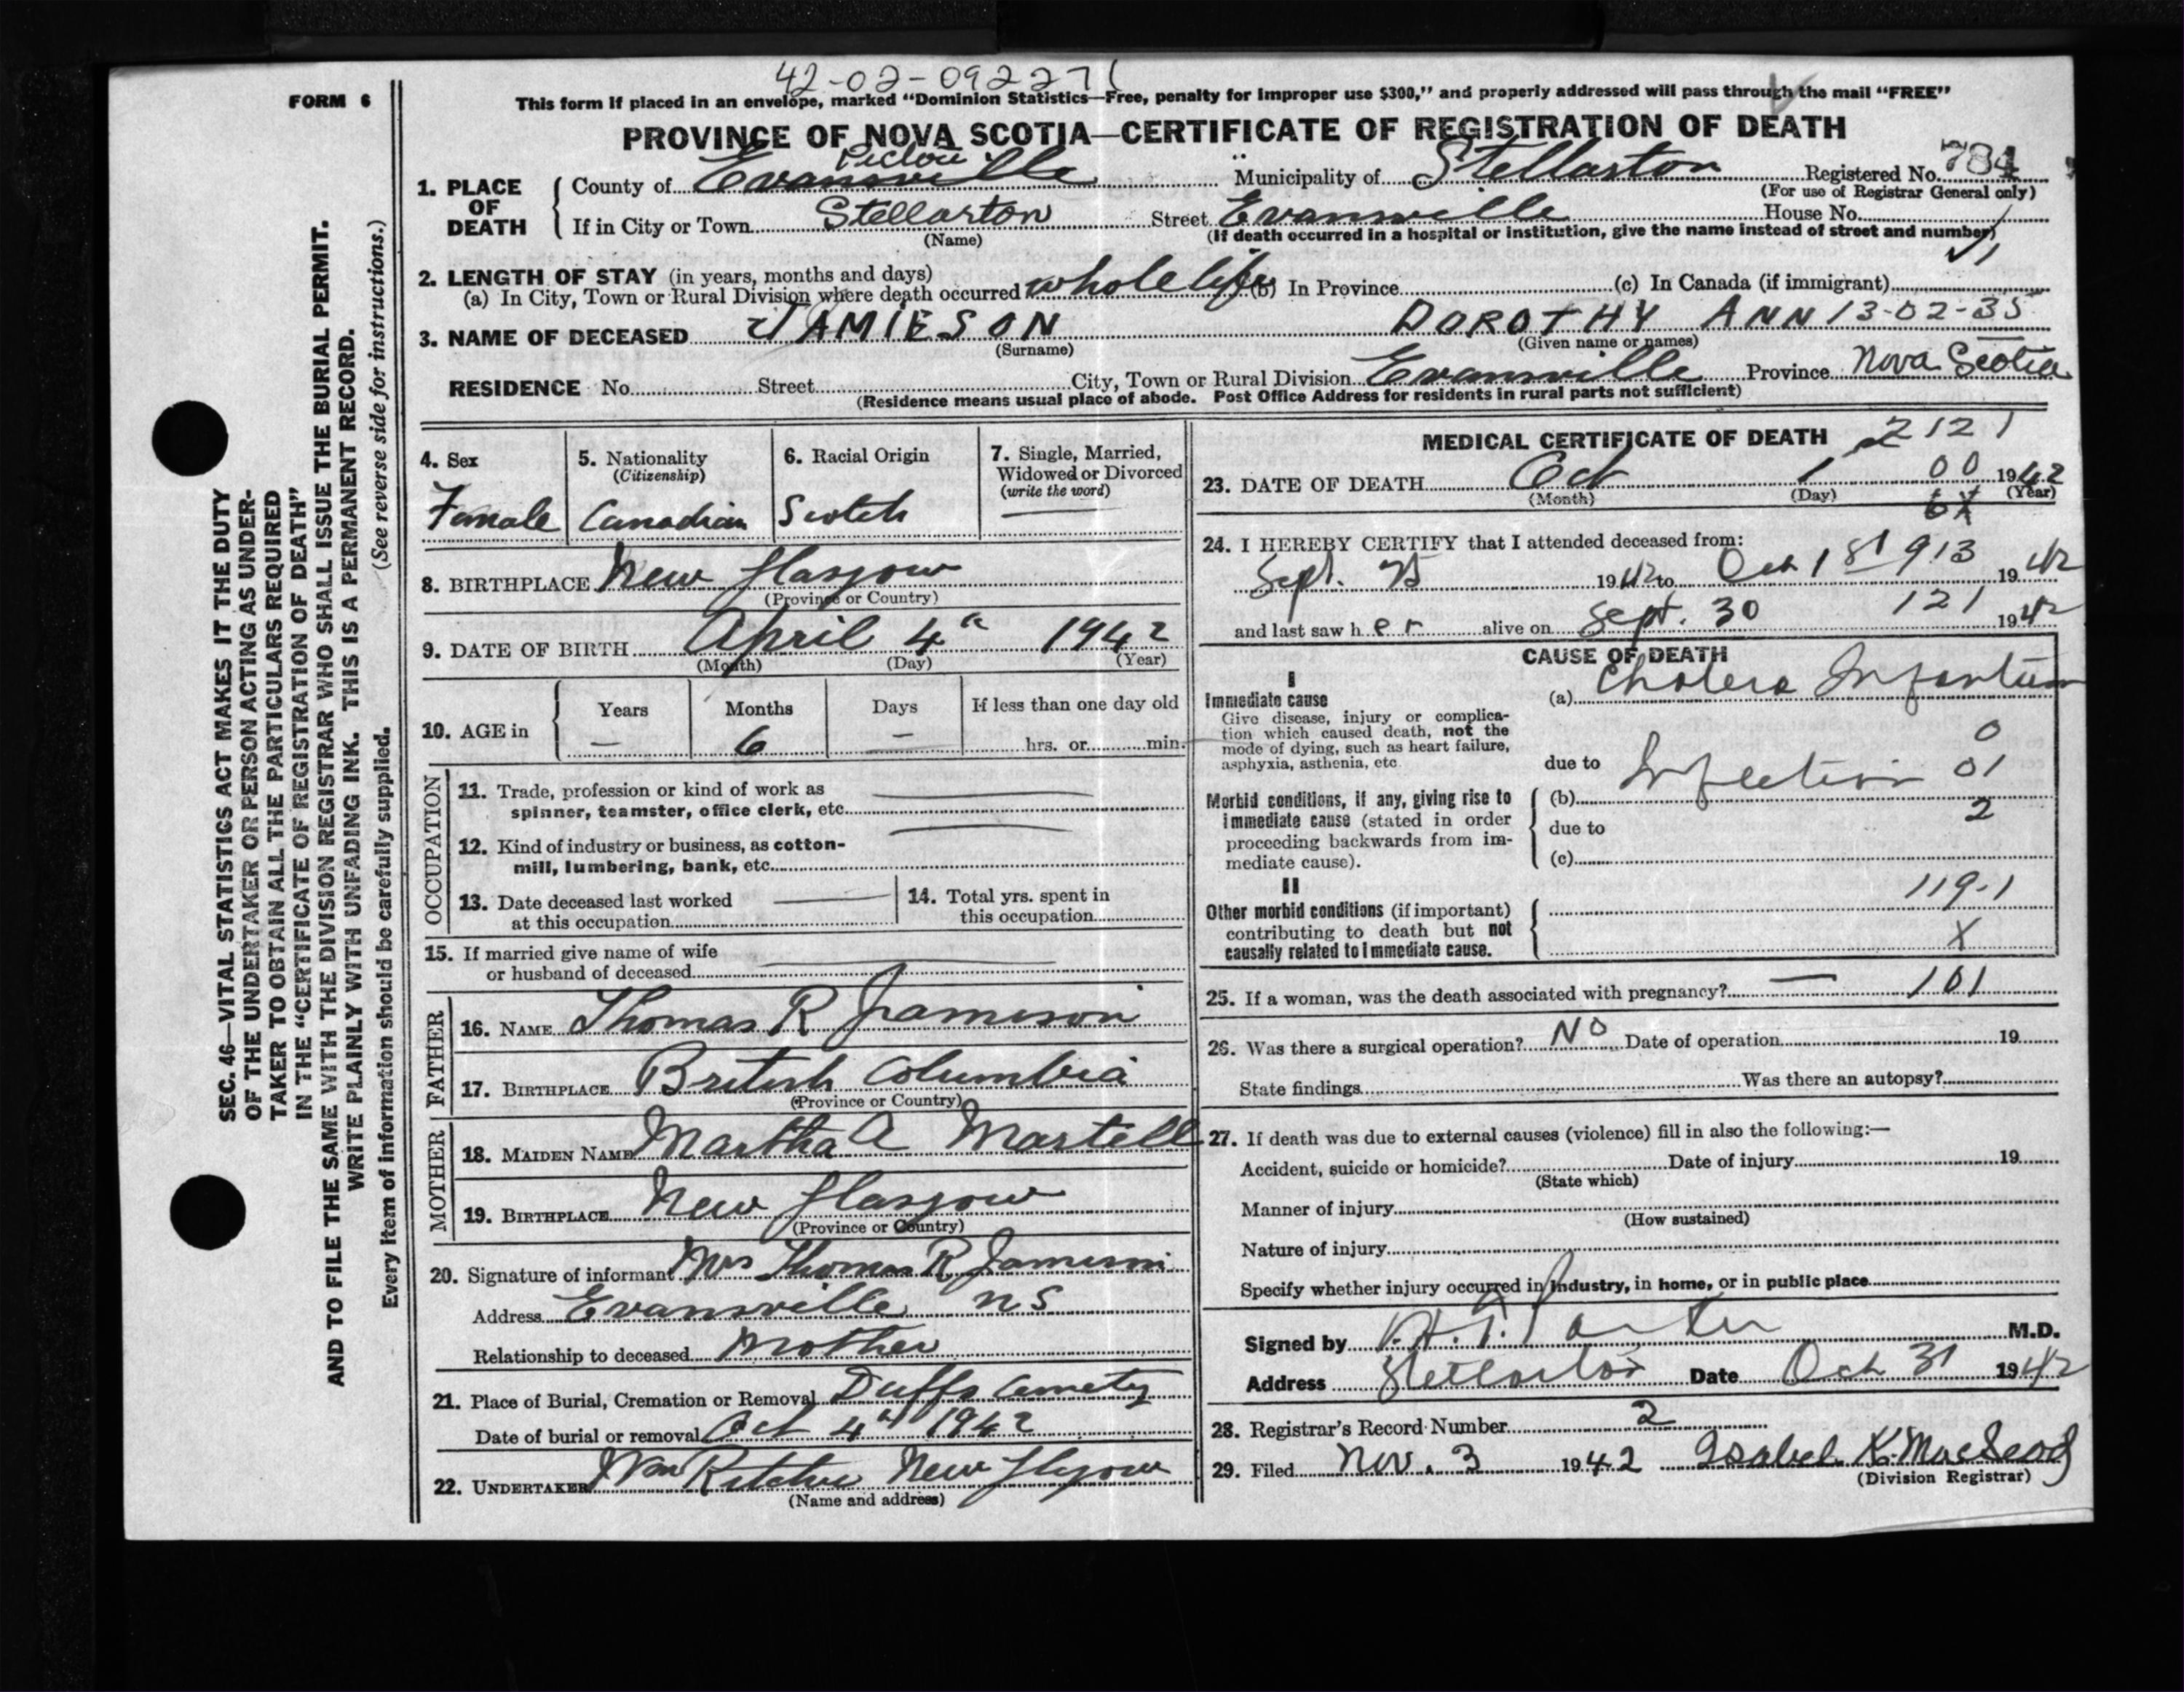 42-02-092271
FORM 6
This form if placed in an envelope, marked "Dominion Statistics—Free, penalty for improper use $300," and properly addressed will pass through the mail "FREE"
PROVINCE OF NOVA SCOTIA—CERTIFICATE OF REGISTRATION OF DEATH
1. PLACE OF DEATH
Pictou
County of Evansville Municipality of Stellarton Registered No. 784
(For use of Registrar General only)
If in City or Town Stellarton Street Evansville House No.
(Name) (If death occurred in a hospital or institution, give the name instead of street and number)
2. LENGTH OF STAY (in years, months and days)
(a) In City, Town or Rural Division where death occurred whole life (b) In Province (c) In Canada (if immigrant)
3. NAME OF DECEASED JAMIESON DOROTHY ANN 13-02-35
(Surname) (Given name or names)
RESIDENCE No. Street City, Town or Rural Division Evansville Province Nova Scotia
(Residence means usual place of abode. Post Office Address for residents in rural parts not sufficient)
4. Sex
Female
5. Nationality
(Citizenship)
Canadian
6. Racial Origin
Scotch
7. Single, Married,
Widowed or Divorced
(write the word)
—
8. BIRTHPLACE New Glasgow
(Province or Country)
9. DATE OF BIRTH April 4th 1942
(Month) (Day) (Year)
10. AGE in
Years Months Days If less than one day old
— 6 — hrs. or min.
OCCUPATION
11. Trade, profession or kind of work as
spinner, teamster, office clerk, etc.
12. Kind of industry or business, as cotton-
mill, lumbering, bank, etc.
13. Date deceased last worked
at this occupation
14. Total yrs. spent in
this occupation
15. If married give name of wife
or husband of deceased
FATHER
16. NAME Thomas R Jameson
17. BIRTHPLACE British Columbia
(Province or Country)
MOTHER
18. MAIDEN NAME Martha A Martell
19. BIRTHPLACE New Glasgow
(Province or Country)
20. Signature of informant Mrs Thomas R Jameson
Address Evansville NS
Relationship to deceased Mother
21. Place of Burial, Cremation or Removal Duffs Cemetry
Date of burial or removal Oct 4th 1942
22. UNDERTAKER Wm Ritchie New Glasgow
(Name and address)
MEDICAL CERTIFICATE OF DEATH 2121
23. DATE OF DEATH Oct 1 00 1942
(Month) (Day) (Year)
24. I HEREBY CERTIFY that I attended deceased from:
Sept. 25 1942 to Oct 1st 913 1942
and last saw her alive on Sept. 30 121 1942
CAUSE OF DEATH
I
Immediate cause
Give disease, injury or complica-
tion which caused death, not the
mode of dying, such as heart failure,
asphyxia, asthenia, etc.
(a) Cholera Infantum
0
due to Infection 01
Morbid conditions, if any, giving rise to
immediate cause (stated in order
proceeding backwards from im-
mediate cause).
(b)
2
due to
(c)
II
Other morbid conditions (if important)
contributing to death but not
causally related to immediate cause.
119-1
X
25. If a woman, was the death associated with pregnancy? — 101
26. Was there a surgical operation? No Date of operation 19
State findings Was there an autopsy?
27. If death was due to external causes (violence) fill in also the following:—
Accident, suicide or homicide? Date of injury 19
(State which)
Manner of injury
(How sustained)
Nature of injury
Specify whether injury occurred in Industry, in home, or in public place
Signed by Parker M.D.
Address Stellarton Date Oct 31 1942
28. Registrar's Record Number 2
29. Filed Nov. 3 1942 Isabel K. MacLeod
(Division Registrar)
SEC. 46—VITAL STATISTICS ACT MAKES IT THE DUTY
OF THE UNDERTAKER OR PERSON ACTING AS UNDER-
TAKER TO OBTAIN ALL THE PARTICULARS REQUIRED
IN THE "CERTIFICATE OF REGISTRATION OF DEATH"
AND TO FILE THE SAME WITH THE DIVISION REGISTRAR WHO SHALL ISSUE THE BURIAL PERMIT.
WRITE PLAINLY WITH UNFADING INK. THIS IS A PERMANENT RECORD.
Every item of information should be carefully supplied. (See reverse side for instructions.)